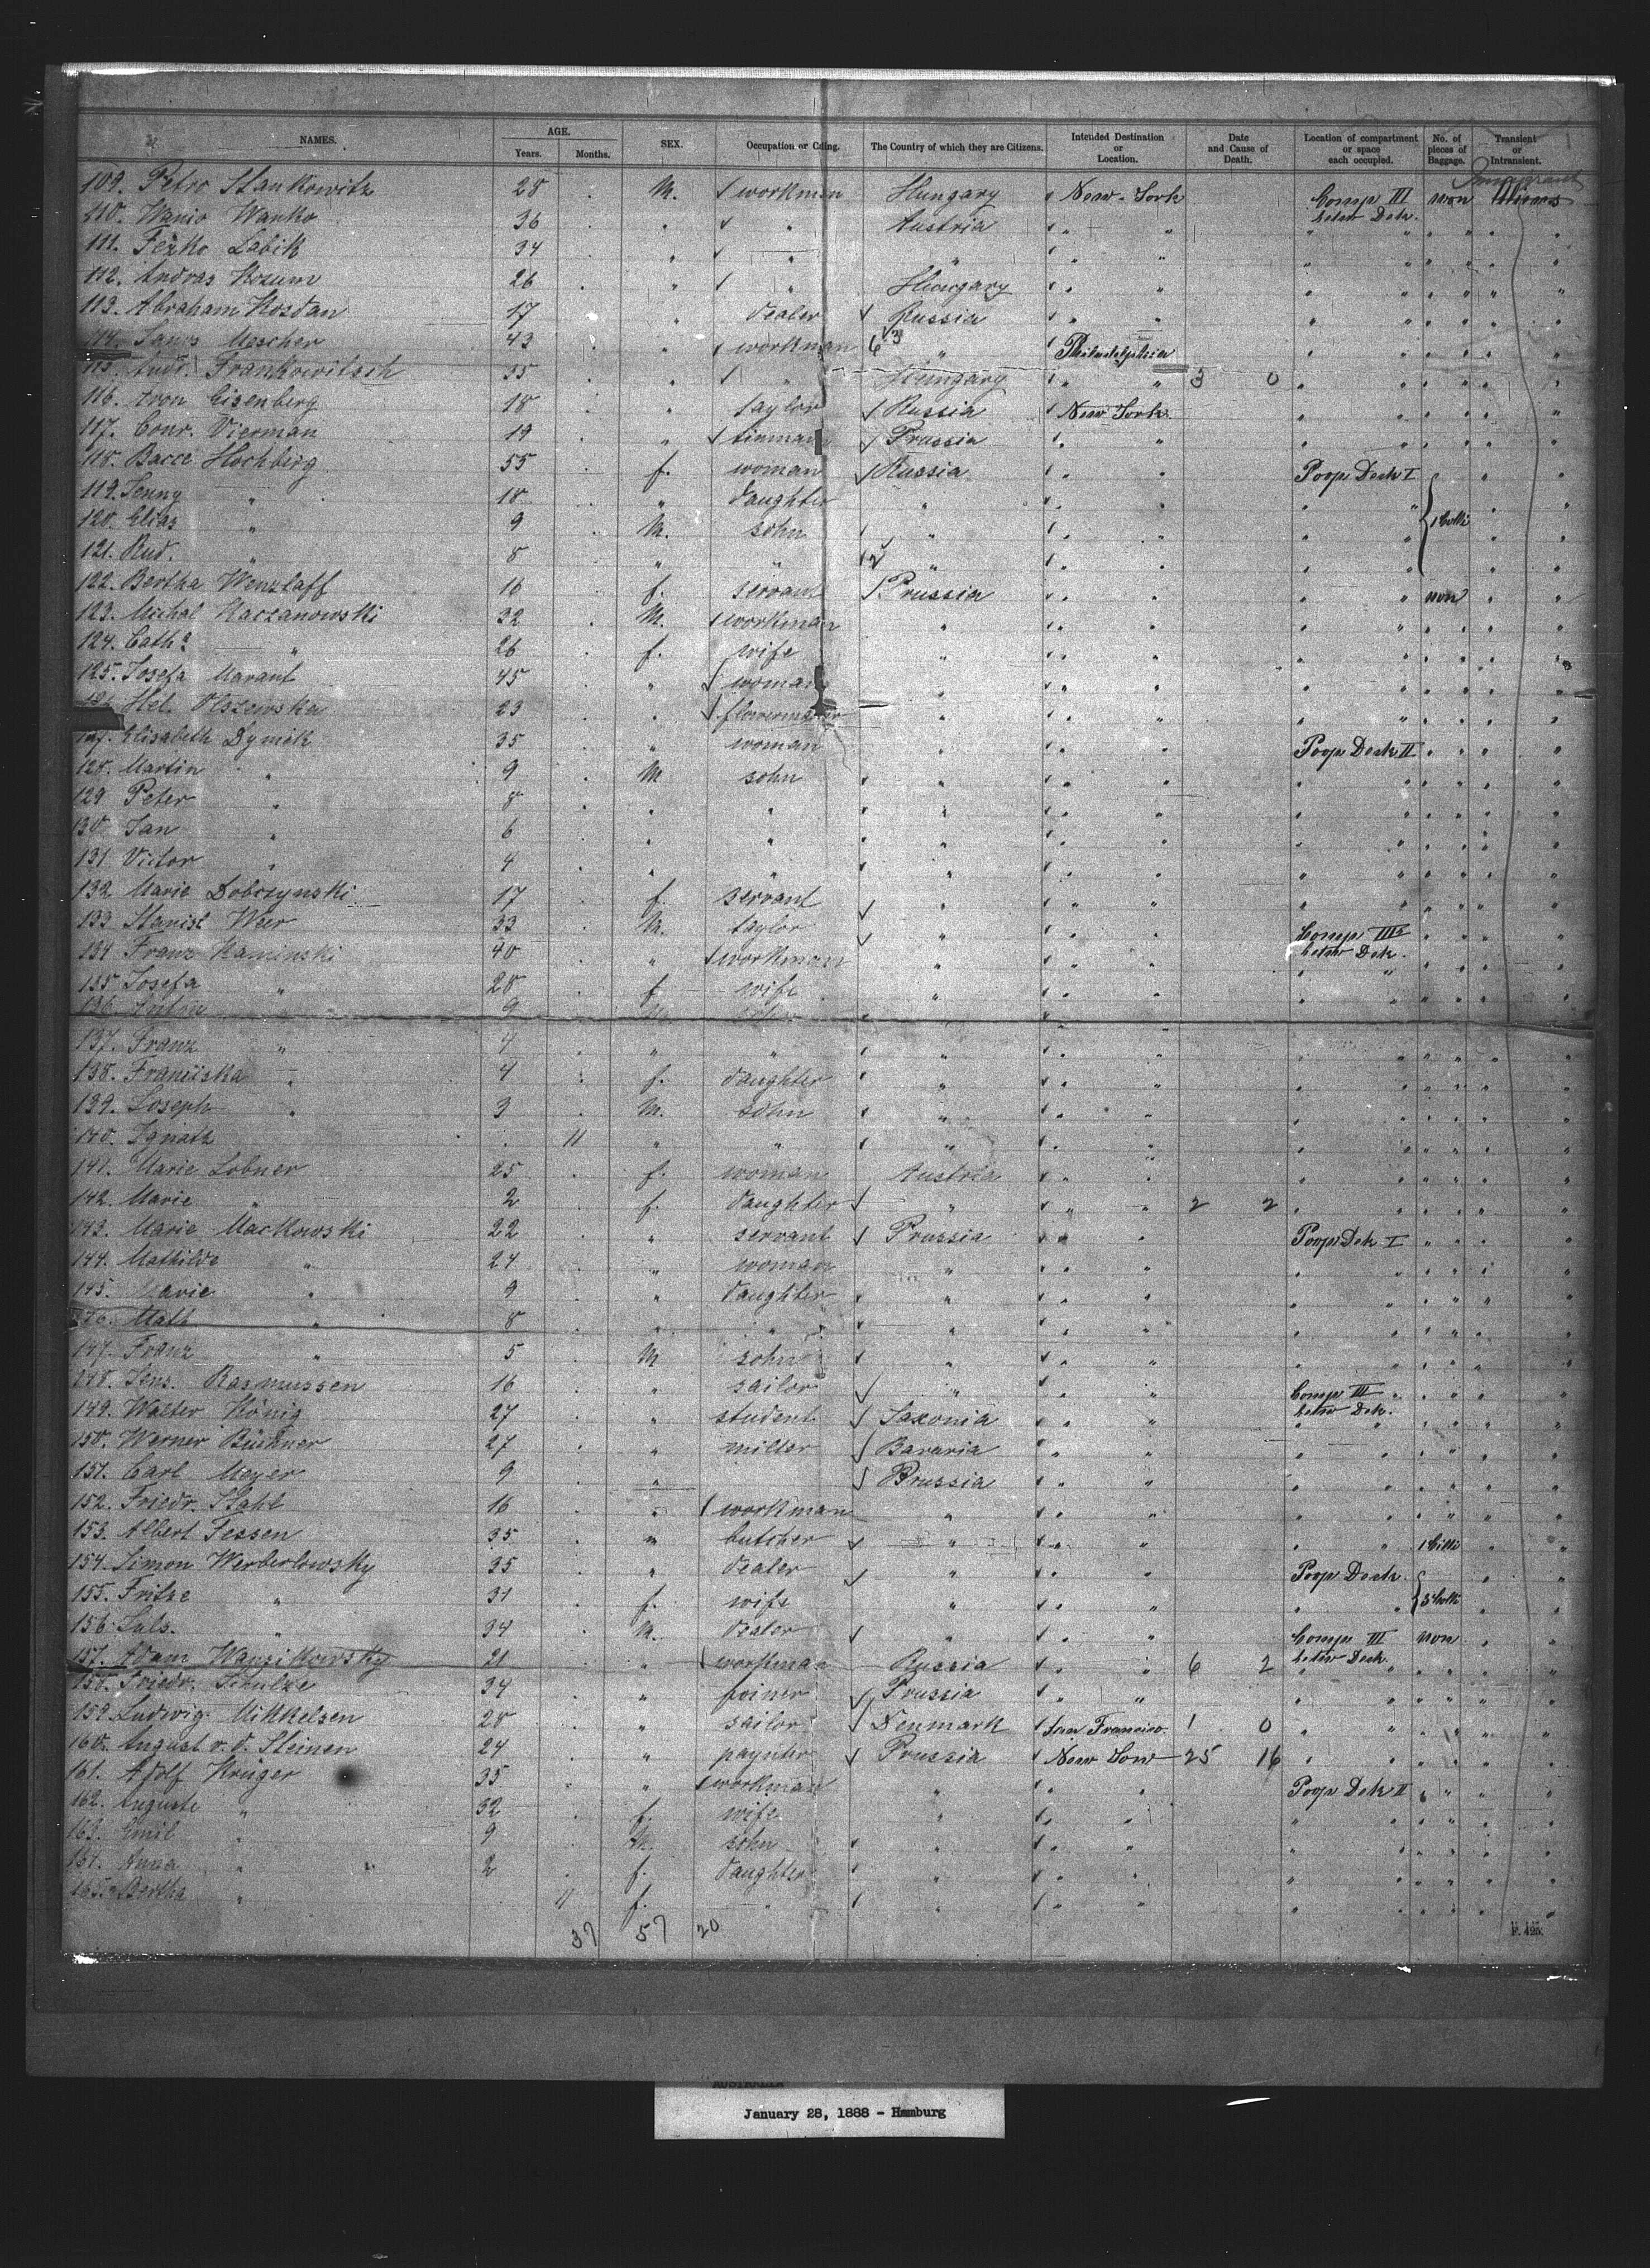 NAMES. AGE. Years. Months. SEX. Occupation or Calling. The Country of which they are Citizens. Intended Destination or Location. Date and Cause of Death. Location of compartment or space each occupied. No. of pieces of Baggage. Transient or Intransient.
109. Petro Stankowitz 28 M. workman Hungary New-York Comp III non
110. Wanio Wanko 36 " " Austria " " betw Dek.
111. Fezko Labik 34 " " " " "
112. Andras Kozum 26 " " Hungary " "
113. Abraham Kosdan 17 " dealer Russia " "
114. Mescher 43 " workman " Philadelphia
115. Andr. Frankowitsch 35 " " Hungary " " 3 0
116. Aron Eisenberg 18 " taylor Russia New York
117. Conr. Vierman 19 " tinman Prussia " "
118. Bacce Hochberg 55 f. woman Russia " " Poop Deck I
119. Jenny " 18 " daughter " " "
120. Elias " 9 M. sohn " " " 1 Colli
121. Rud. " 8 " " " " "
122. Bertha Wenzlaff 16 f. servant Prussia " " non
123. Michal Kaczanowski 32 M. workman " " "
124. Cath. " 26 f. wife " " "
125. Josefa Marant 45 " woman " " "
126. Hel. Olszewska 23 " " " "
127. Elisabeth Dymek 35 " woman " " " Poop Deck II
128. Martin " 9 M sohn " " "
129 Peter " 8 " " " " "
130. Jan " 6 " " " " "
131 Victor " 4 " " " " "
132 Marie Dobczynski 17 f. servant " " "
133 Stanisl Weer 33 M. taylor " " " Comp III
134 Franz Kaminski 40 " workman " " " betw Dek.
135 Josefa " 28 f wife " " "
136. 9
137. Franz " 4 " " " " "
138. Franciska " 4 f. daughter " " "
139. Joseph " 3 M. sohn " " "
140. Ignatz 11 " " " " "
141. Marie Lobner 25 f. woman Austria " "
142. Marie " 2 f. daughter " " " 2 2
143. Marie Mackowski 22 " servant Prussia " " Poop Dek I
144. Mathilde " 24 " woman " " "
145. Marie " 9 " daughter " " "
146. Math " 8 " " " " "
147. Franz " 5 M sohn " " "
148. Jens. Rasmussen 16 " sailor " " " Comp III
149. Walter König 27 " student Saxonia " " betw Dek.
150. Werner Büchner 27 " miller Bavaria " "
151. Carl Meyer 9 " Prussia " "
152. Friedr. Stahl 16 " workman " " "
153. Albert Jessen 35 " butcher " " " 1 Colli
154. Simon Werberlowsky 35 " dealer " " " Poop Deck
155. Fritze " 31 f. wife " " " 3 Colli
156. " 34 M. dealer " " " Comp III non
157. Adam 21 " workman Russia " " 6 2 betw Deck.
158. Friedr. Schulze 34 " joiner Prussia " "
159. Ludwig Mikkelsen 28 " sailor Denmark San Francisco 1 0
160. August v. d. Steinen 24 " paynter Prussia New York 25 16
161. Adolf Krüger 35 " workman " " " Poop Dek II
162. Auguste " 32 f. wife " " "
163. Emil " 9 M. sohn " " "
164. Anna " 2 f. daughter " " "
165. Bertha " 11 f. " " " "
37 57 20
F. 495.
January 28, 1888 - Hamburg